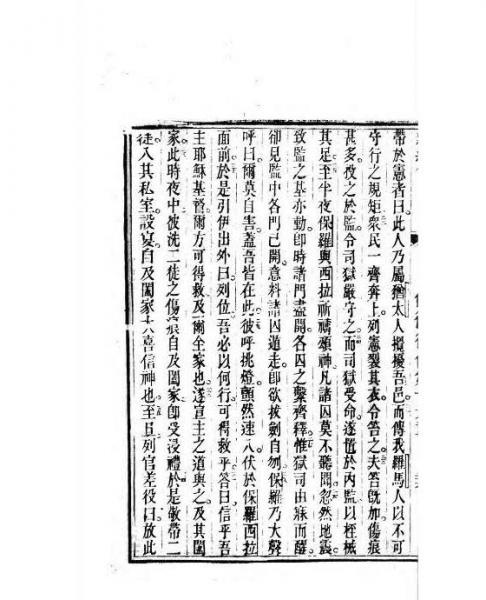 帶於憲者曰此人乃屬猶太人攪擾吾邑而傳我羅馬人以不可
守行之規矩衆民一齊奔上列憲裂其衣令笞之夫笞旣加傷痕
甚多投之於監令司獄嚴守之而司獄受命遂置於內監以桎械
其足至半夜保羅與西拉祈禱頌神凡諸囚莫不聽聞忽然地震
致監之基亦動卽時諸門盡開各囚之繫齊釋惟獄司由寐而醒
卻見監中各門已開意料諸囚遁走卽欲拔劍自刎保羅乃大聲
呼曰爾莫自害蓋吾皆在此彼呼挑燈顫然速入伏於保羅西拉
面前於是引伊出外曰列位吾必以何行可得救乎答曰信乎吾
主耶穌基督爾方可得救及爾全家也遂宣主之道與之及其闔
家此時夜中被洗二徒之傷痕自及闔家卽受浸禮於是敏帶二
徒入其私室設宴自及闔家大喜信神也至旦列官差役曰放此